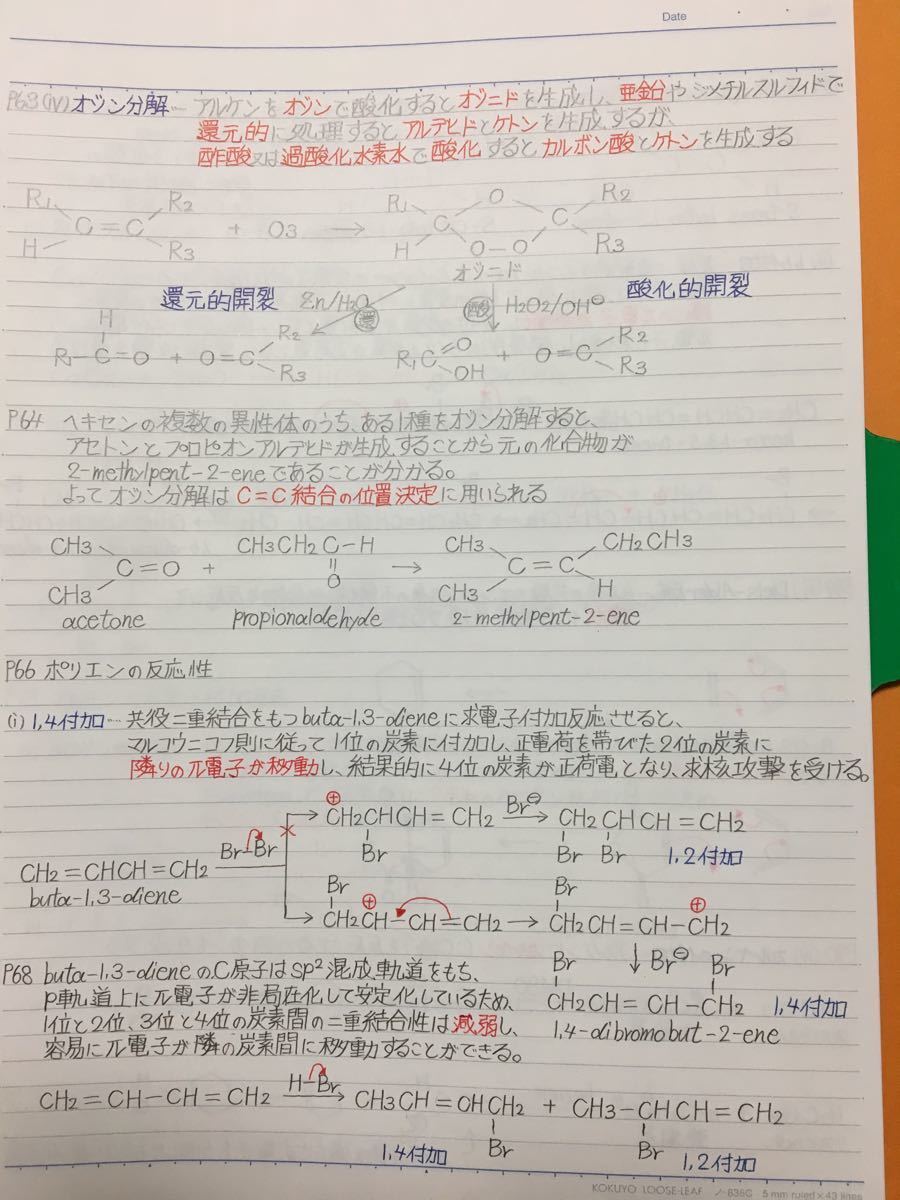 Date
P63(iv)オゾン分解… アルケンをオゾンで酸化するとオゾニドを生成し、亜金分やジメチルスルフィドで
還元的に処理するとアルデヒドとケトンを生成するが、
酢酸又は過酸化水素水で酸化するとカルボン酸とケトンを生成する
R1 H C=C R2 R3 + O3 → R1 H C O O-O C R2 R3
オゾニド
還元的開裂 Zn/H2O 還 酸 H2O2/OH⊖ 酸化的開裂
H
R1-C=O + O=C R2 R3 R1C =O OH + O=C R2 R3
P64 ヘキセンの複数の異性体のうち、ある1種をオゾン分解すると、
アセトンとプロピオンアルデヒドが生成することから元の化合物が
2-methylpent-2-eneであることが分かる。
よってオゾン分解はC=C結合の位置決定に用いられる
CH3 CH3 C=O + CH3CH2C-H =O → CH3 CH3 C=C CH2CH3 H
acetone propionaldehyde 2-methylpent-2-ene
P66 ポリエンの反応性
(i) 1,4付加… 共役二重結合をもつbuta-1,3-dieneに求電子付加反応させると、
マルコウニコフ則に従って1位の炭素に付加し、正電荷を帯びた2位の炭素に
隣りのπ電子が移動し、結果的に4位の炭素が正荷電となり、求核攻撃を受ける。
⊕
CH2CHCH=CH2 Br⊖ → CH2CHCH=CH2
Br Br Br 1,2付加
CH2=CHCH=CH2 Br-Br ×
buta-1,3-diene
Br ⊕ Br ⊕
CH2CH-CH=CH2 → CH2CH=CH-CH2
↓Br⊖
Br Br
CH2CH=CH-CH2 1,4付加
1,4-dibromobut-2-ene
P68 buta-1,3-dieneのC原子はsp²混成軌道をもち、
p軌道上にπ電子が非局在化して安定化しているため、
1位と2位、3位と4位の炭素間の二重結合性は減弱し、
容易にπ電子が隣の炭素間に移動することができる。
CH2=CH-CH=CH2 H-Br → CH3CH=CHCH2 + CH3-CHCH=CH2
Br Br
1,4付加 1,2付加
KOKUYO LOOSE-LEAF ノ-836C 5 mm ruled×43 lines